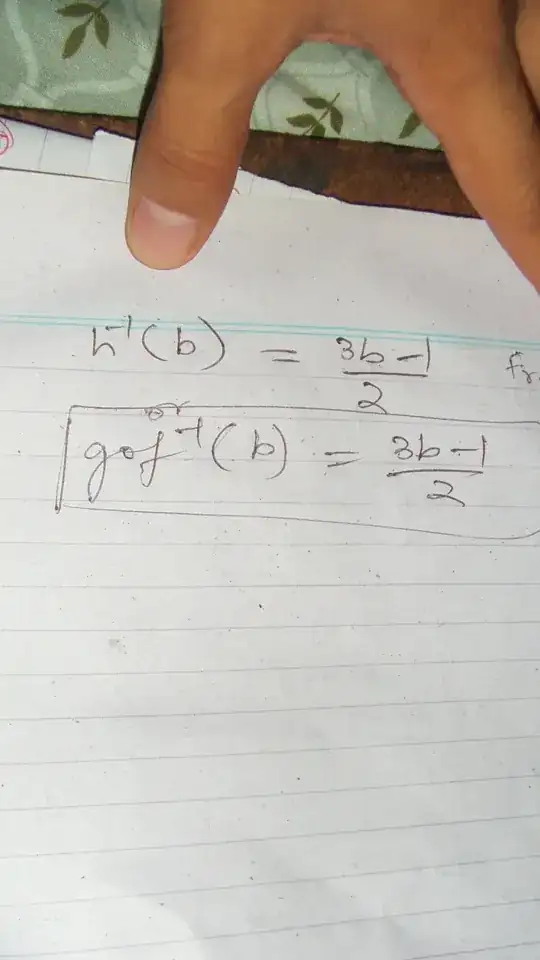 h⁻¹(b) = (3b-1)/2
or
gof⁻¹(b) = (3b-1)/2